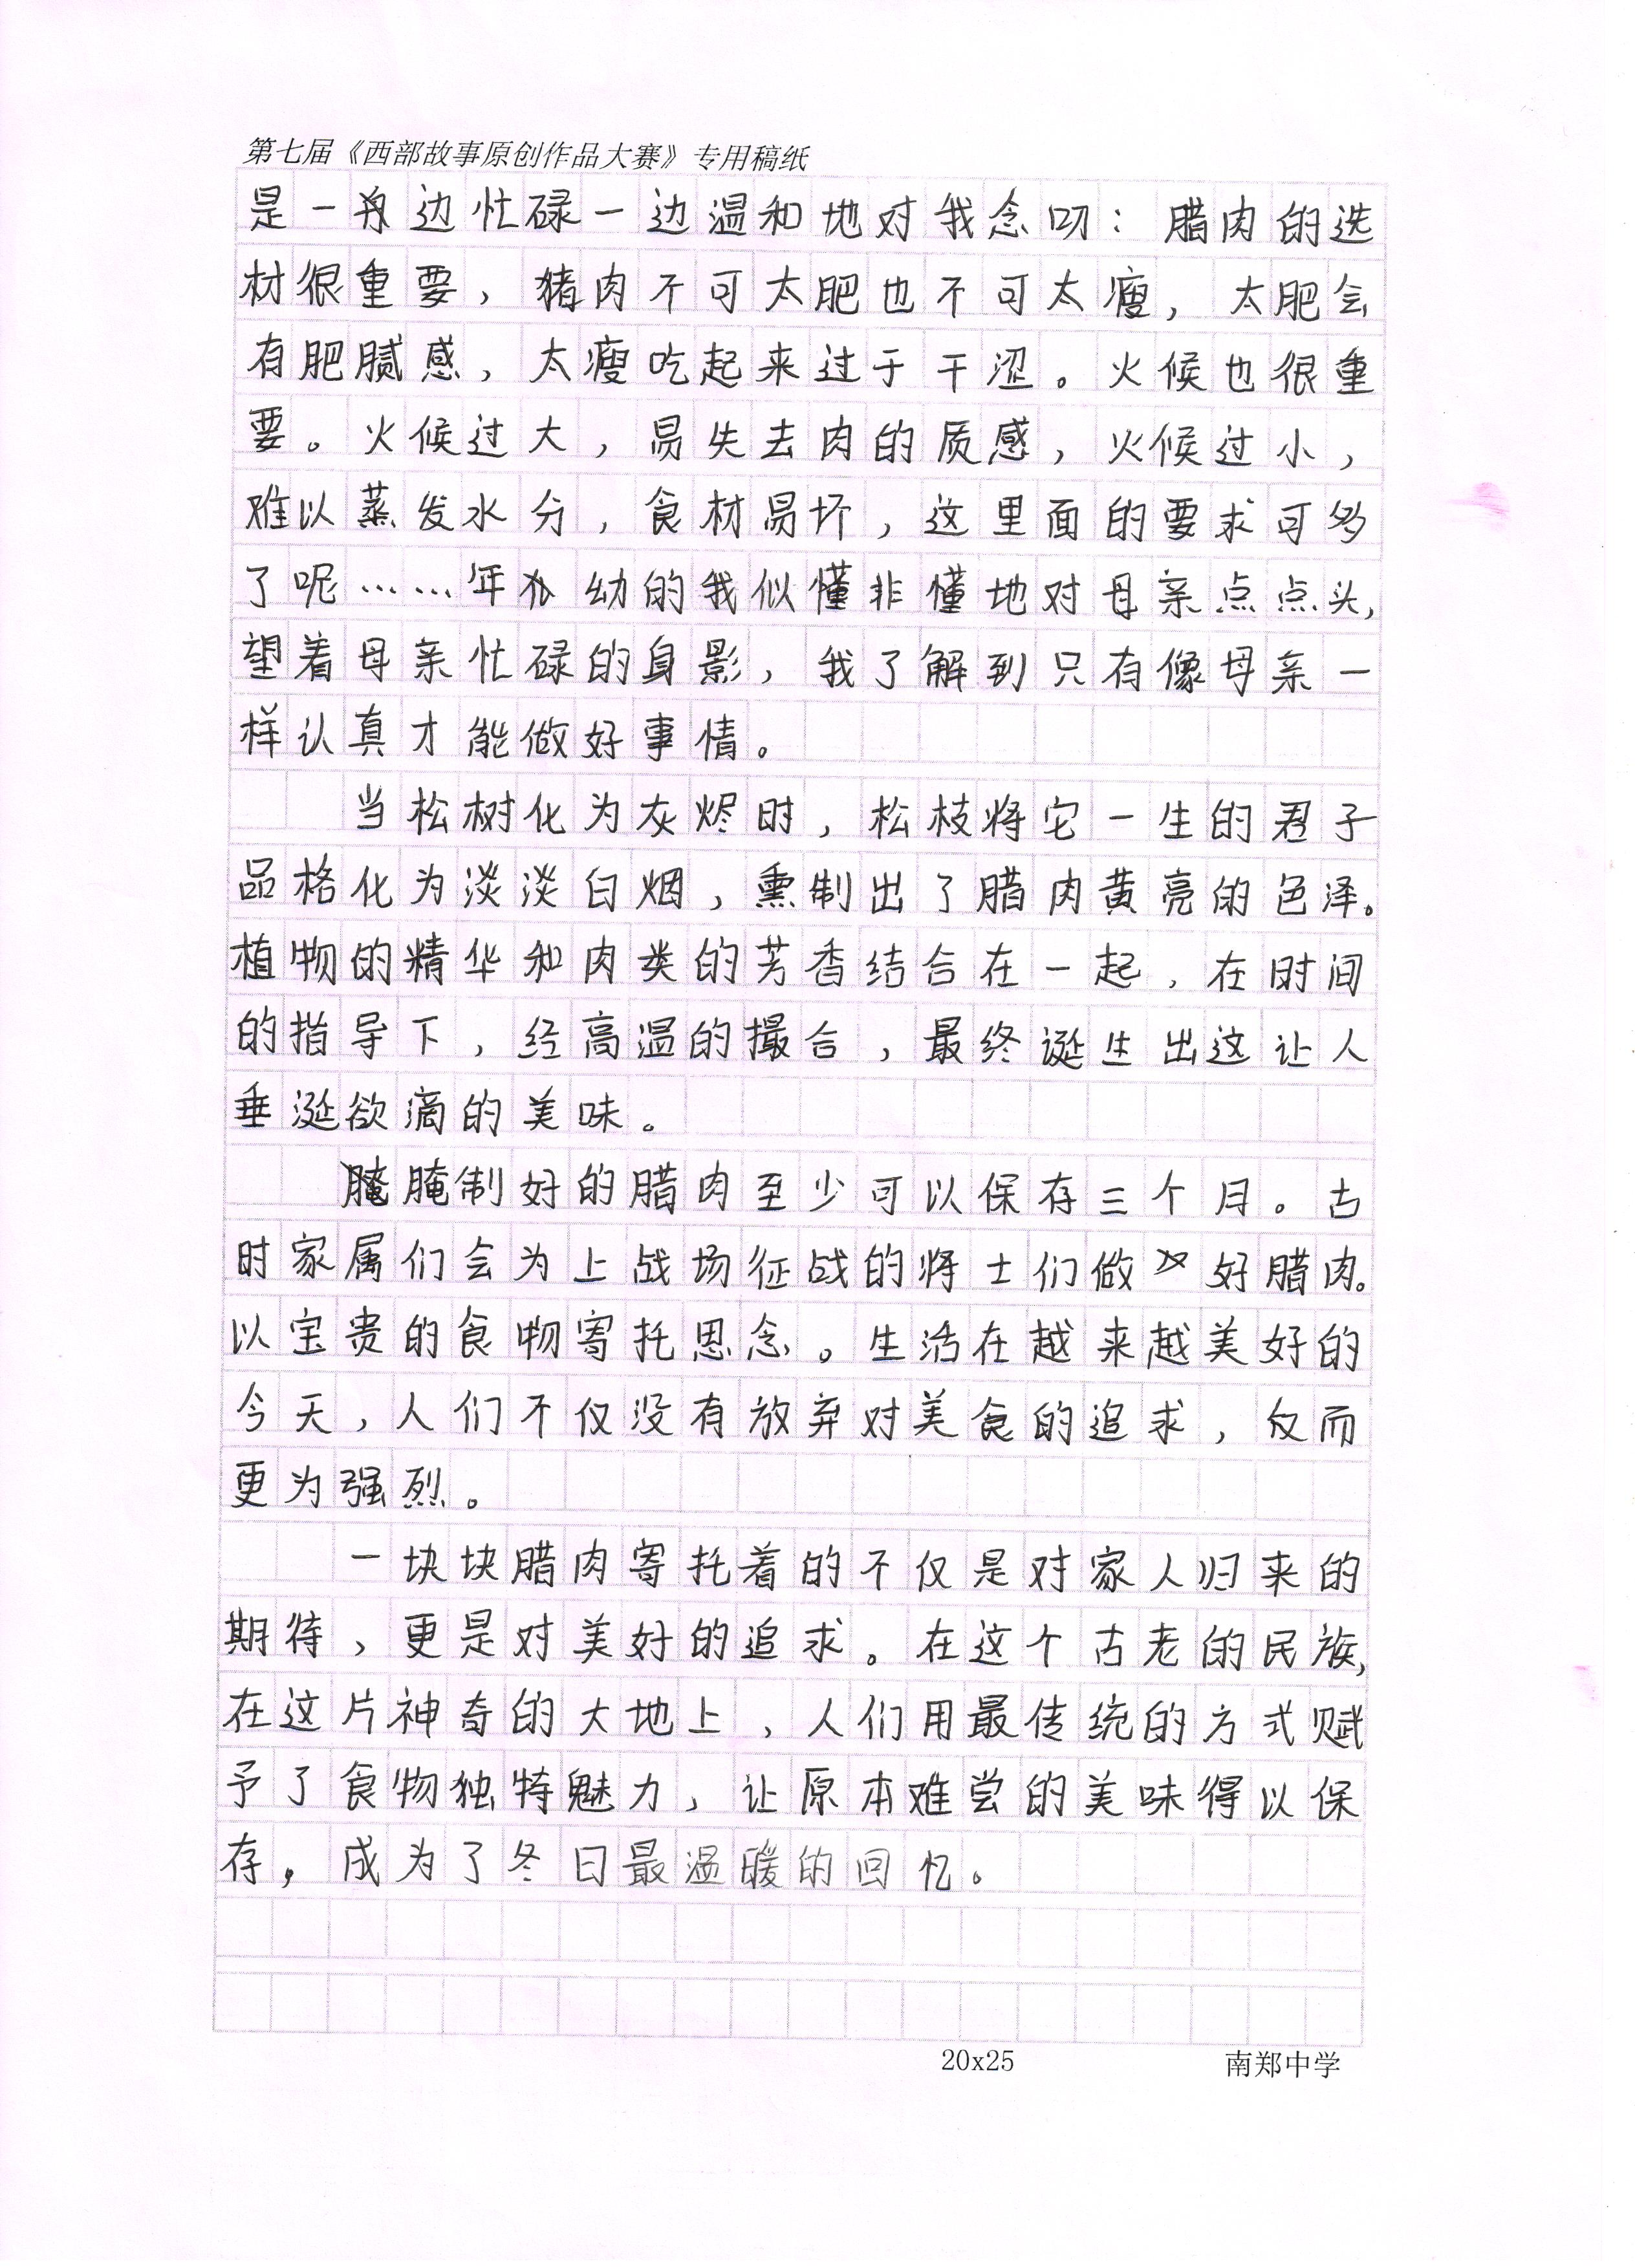 第七届《西部故事原创作品大赛》专用稿纸
是一边忙碌一边温和地对我念叨：腊肉的选
材很重要，猪肉不可太肥也不可太瘦，太肥会
有肥腻感，太瘦吃起来过于干涩。火候也很重
要。火候过大，易失去肉的质感，火候过小，
难以蒸发水分，食材易坏，这里面的要求可多
了呢……年幼的我似懂非懂地对母亲点点头，
望着母亲忙碌的身影，我了解到只有像母亲一
样认真才能做好事情。
当松树化为灰烬时，松枝将它一生的君子
品格化为淡淡白烟，熏制出了腊肉黄亮的色泽。
植物的精华和肉类的芳香结合在一起，在时间
的指导下，经高温的撮合，最终诞生出这让人
垂涎欲滴的美味。
腌制好的腊肉至少可以保存三个月。古
时家属们会为上战场征战的将士们做好腊肉。
以宝贵的食物寄托思念。生活在越来越美好的
今天，人们不仅没有放弃对美食的追求，反而
更为强烈。
一块块腊肉寄托着的不仅是对家人归来的
期待，更是对美好的追求。在这个古老的民族，
在这片神奇的大地上，人们用最传统的方式赋
予了食物独特魅力，让原本难尝的美味得以保
存，成为了冬日最温暖的回忆。
20x25
南郑中学